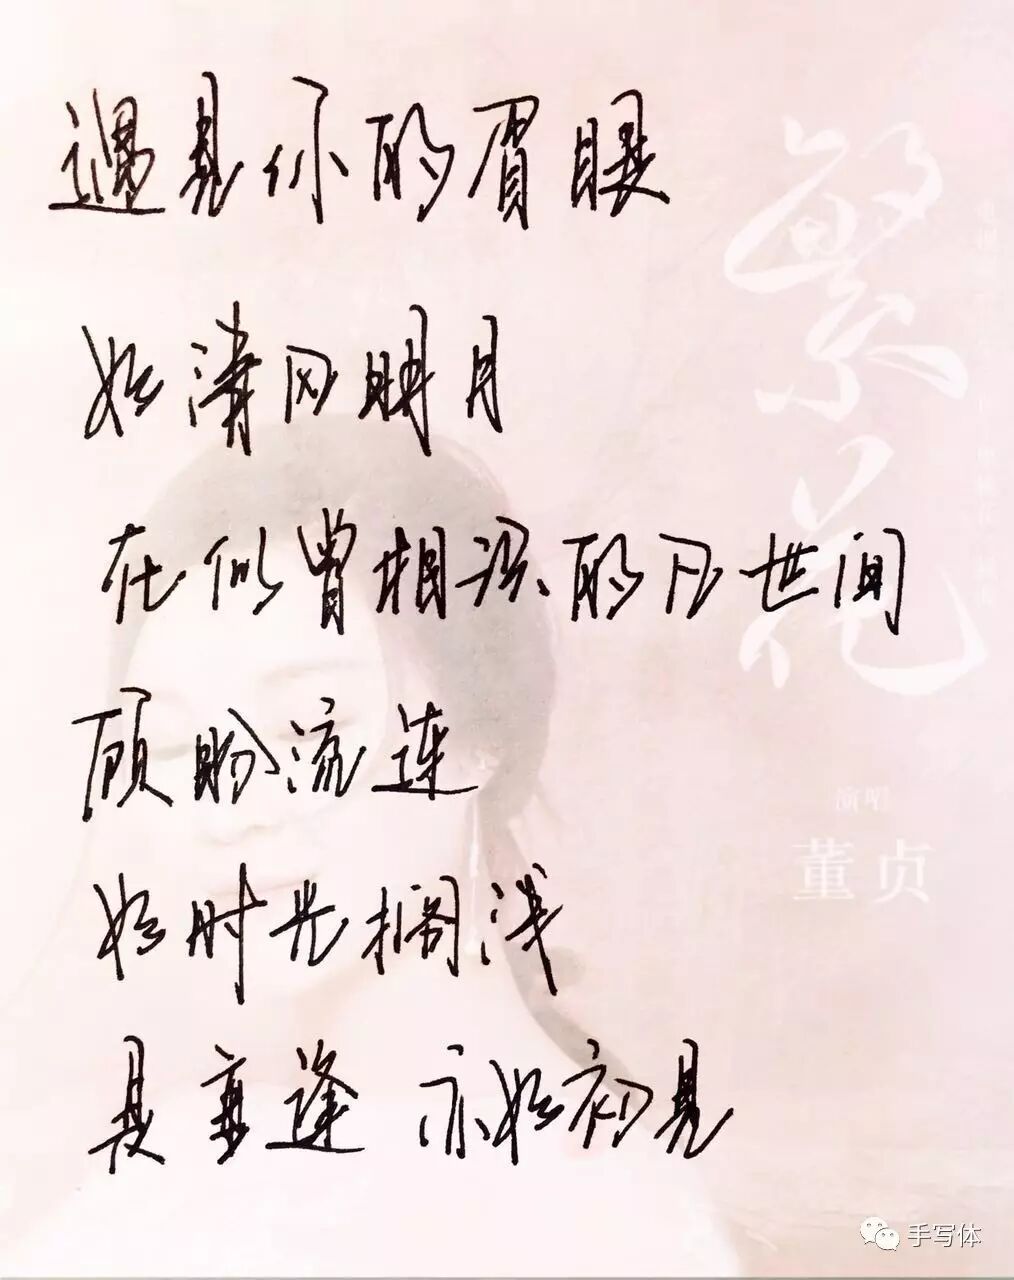 遇见你的眉眼
如清风明月
在似曾相识的凡世间
顾盼流连
如时光搁浅
是重逢 亦如初见
繁花
演唱
董贞
手写体